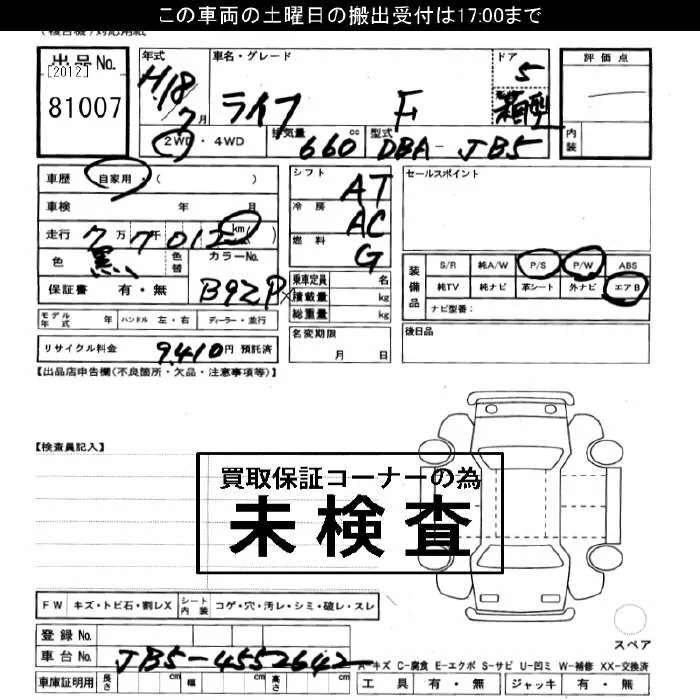 この車両の土曜日の搬出受付は17:00まで
出品No. [2012] 81007
年式 H.18 7月
車名・グレード ライフ F
ドア 5 箱型
2WD・4WD 排気量 660 cc 型式 DBA-JB5
評価点
内装
車歴 自家用 ( )
車検 年 月
走行 7万7千012 km
色 黒 色替 カラーNo. B92P
保証書 有・無
モデル年式 年 ハンドル 左・右 ディーラー・並行
リサイクル料金 9,410円 預託済
シフト AT
冷房 AC
燃料 G
乗車定員 名
積載量 kg
総重量 kg
名変期限 月 日
セールスポイント
装備品 S/R 純A/W P/S P/W ABS
純TV 純ナビ 革シート 外ナビ エアB
ナビ型番:
後日品
【出品店申告欄(不良箇所・欠品・注意事項等)】
【検査員記入】
買取保証コーナーの為
未検査
FW キズ・トビ石・割レX シート内装 コゲ・穴・汚レ・シミ・破レ・スレ
登録No.
車台No. JB5-4552642
スペア
A-キズ C-腐食 E-エクボ S-サビ U-凹ミ W-補修 XX-交換済
車庫証明用 長さ cm 幅 cm 高さ cm
工具 有・無 ジャッキ 有・無